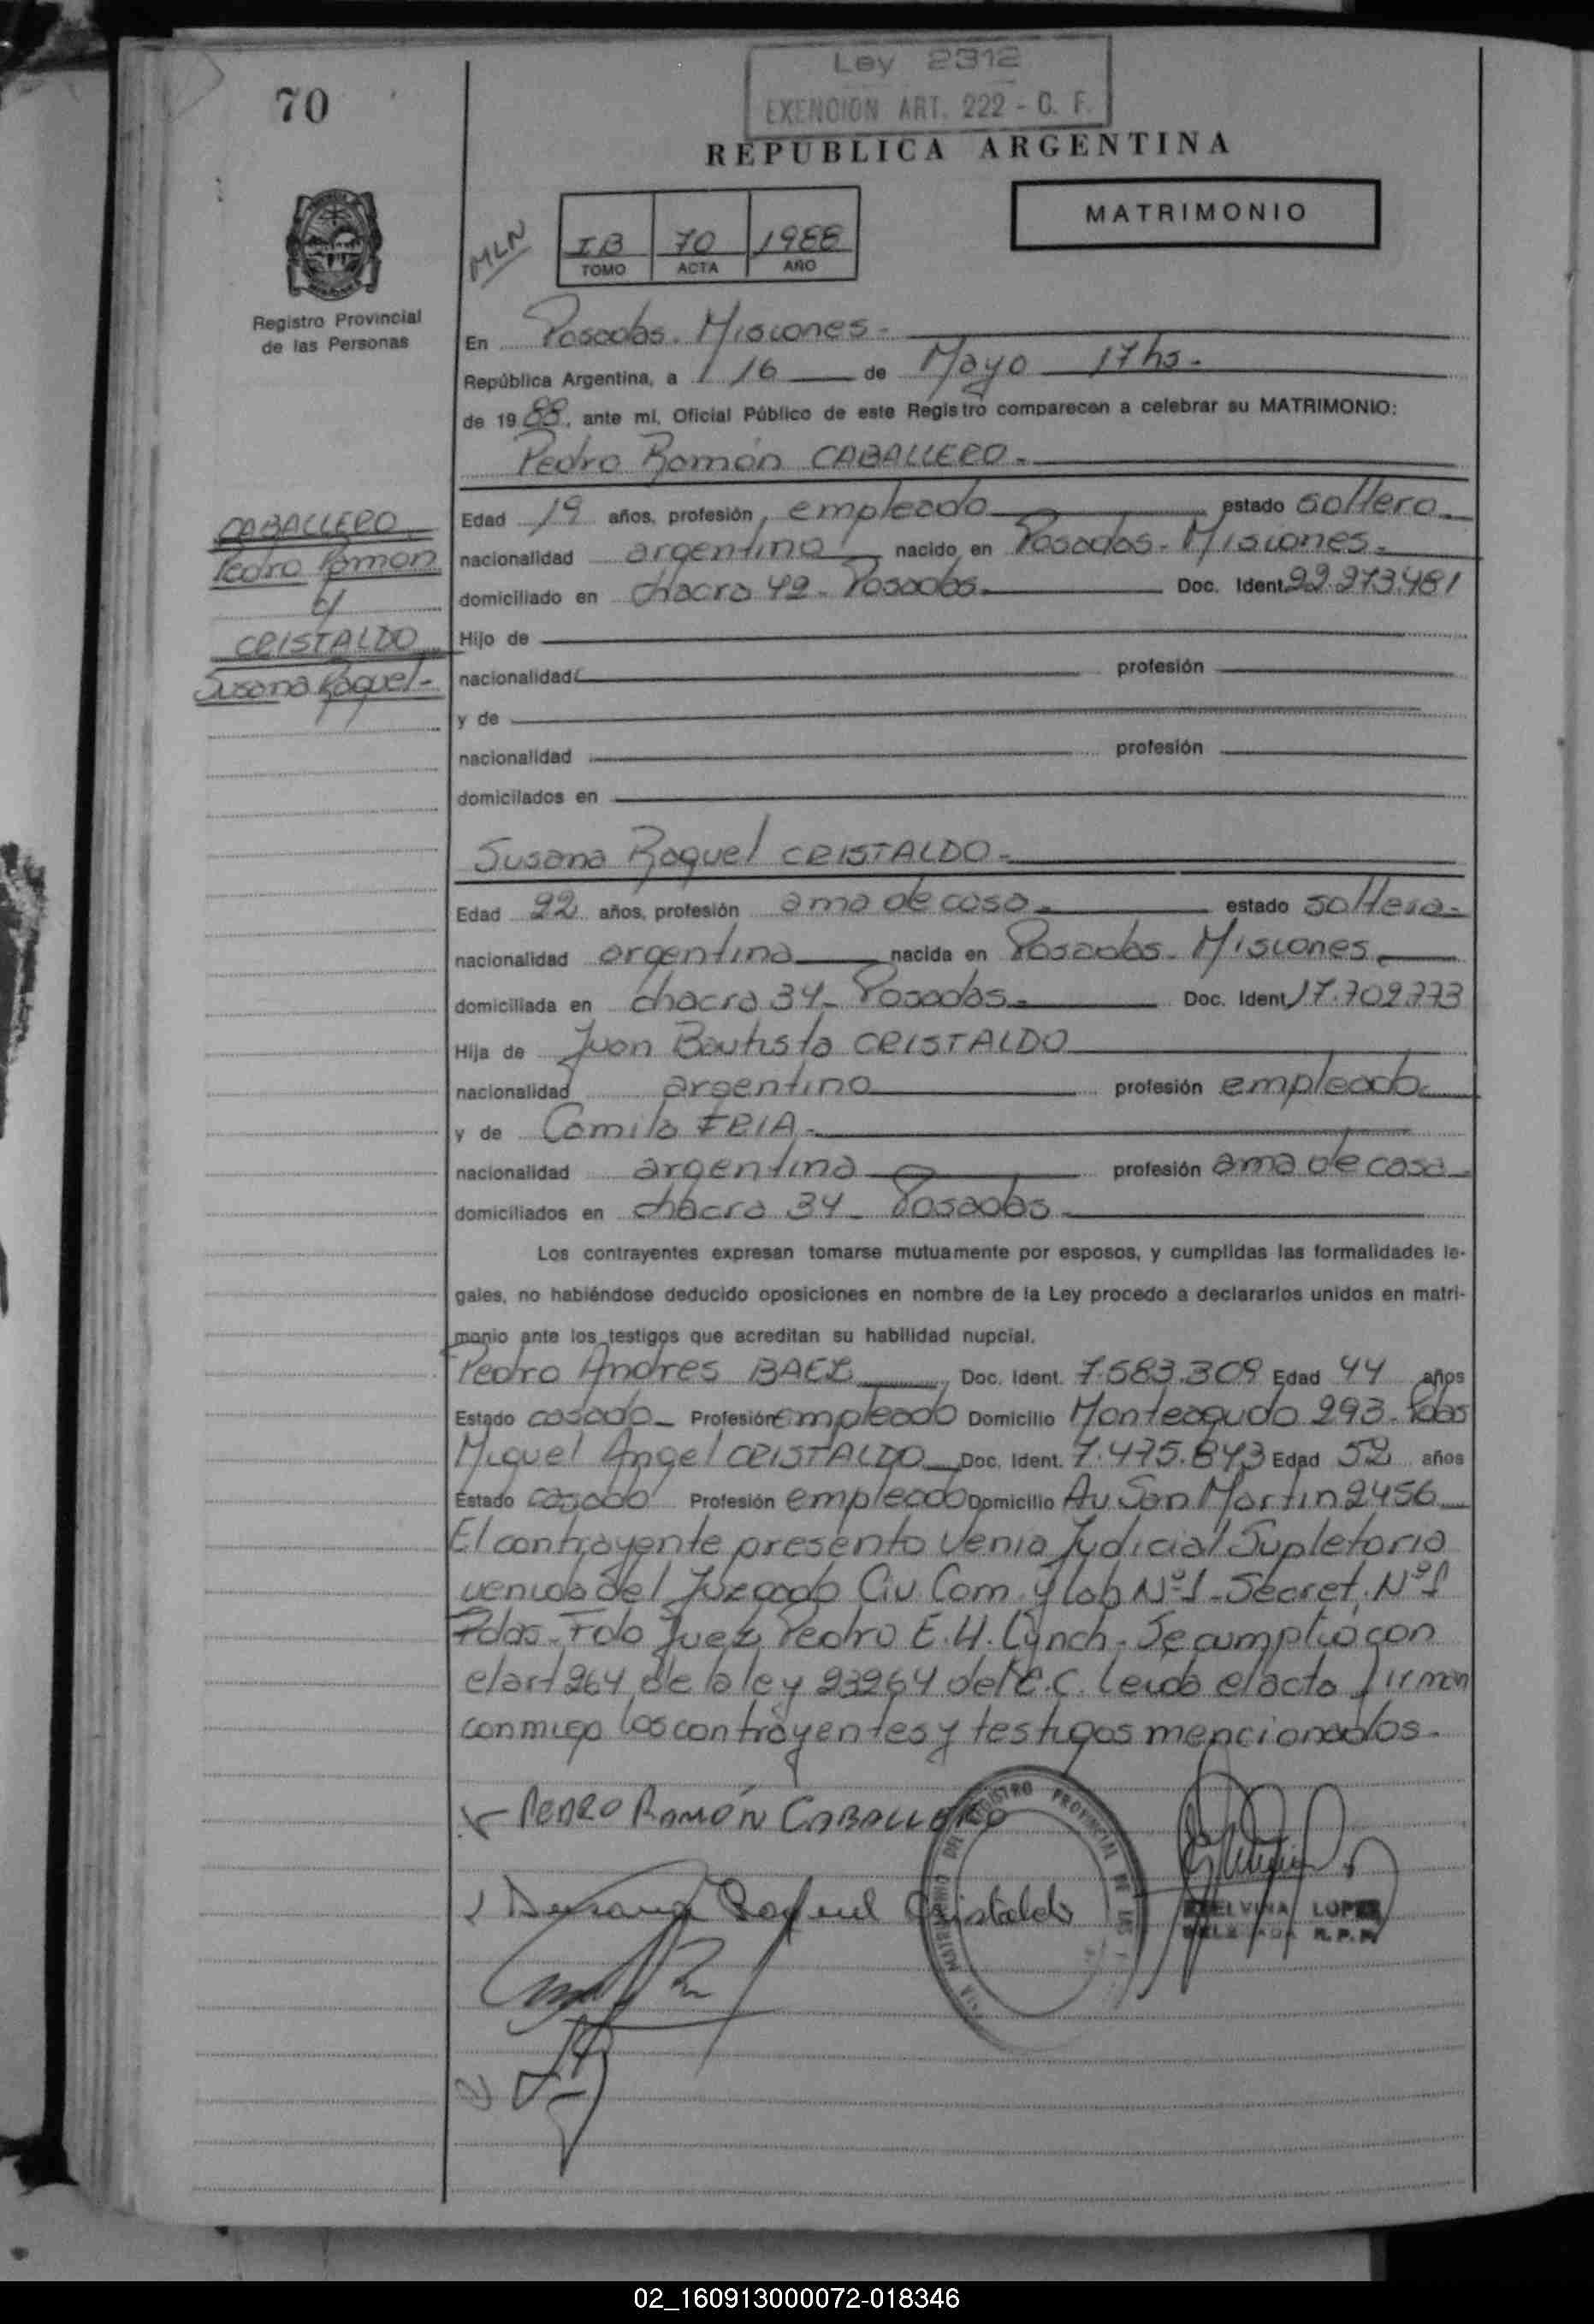 Ley 2312
EXENCION ART. 222 - C. F.
70
REPUBLICA ARGENTINA
MATRIMONIO
MLN
IB 70 1988
TOMO ACTA AÑO
Registro Provincial
de las Personas
En Posadas. Misiones.
República Argentina, a 16 de Mayo 17hs.
de 1988, ante mi, Oficial Público de este Registro comparecen a celebrar su MATRIMONIO:
Pedro Ramón CABALLERO.
CABALLERO
Pedro Ramon
c/
CRISTALDO
Susana Raquel.
Edad 19 años, profesión empleado estado soltero.
nacionalidad argentino nacido en Posadas. Misiones.
domiciliado en chacra 42. Posadas. Doc. Ident. 22.273.481
Hijo de
nacionalidad profesión
y de
nacionalidad profesión
domicilados en
Susana Raquel CRISTALDO.
Edad 22 años, profesión ama de casa. estado soltera.
nacionalidad argentina nacida en Posadas. Misiones.
domiciliada en chacra 34. Posadas. Doc. Ident. 17.702.773
Hija de Juan Bautista CRISTALDO
nacionalidad argentino profesión empleado.
y de Camila FRIA.
nacionalidad argentina profesión ama de casa.
domiciliados en chacra 34. Posadas.
Los contrayentes expresan tomarse mutuamente por esposos, y cumplidas las formalidades le-
gales, no habiéndose deducido oposiciones en nombre de la Ley procedo a declararlos unidos en matri-
monio ante los testigos que acreditan su habilidad nupcial.
Pedro Andres BAEZ Doc. Ident. 7.583.309 Edad 44 años
Estado casado Profesión empleado Domicilio Monteagudo 293. Pdas
Miguel Angel CRISTALDO Doc. Ident. 7.475.843 Edad 52 años
Estado casado Profesión empleado Domicilio Av San Martin 2456
El contrayente presento Venia Judicial Supletoria
venida del Juzgado Civ. Com. y lab Nº1. Secret. Nº1
Pdas. Fdo Juez Pedro E.H. Lynch. Se cumplio con
el art 264 de la ley 23264 del C.C. Leida el acta firman
conmigo los contrayentes y testigos mencionados.
PEDRO RAMÓN CABALLERO
Susana Raquel Cristaldo
REGISTRO PROVINCIAL DE LAS
LOPEZ
R.P.P.
02_160913000072-018346